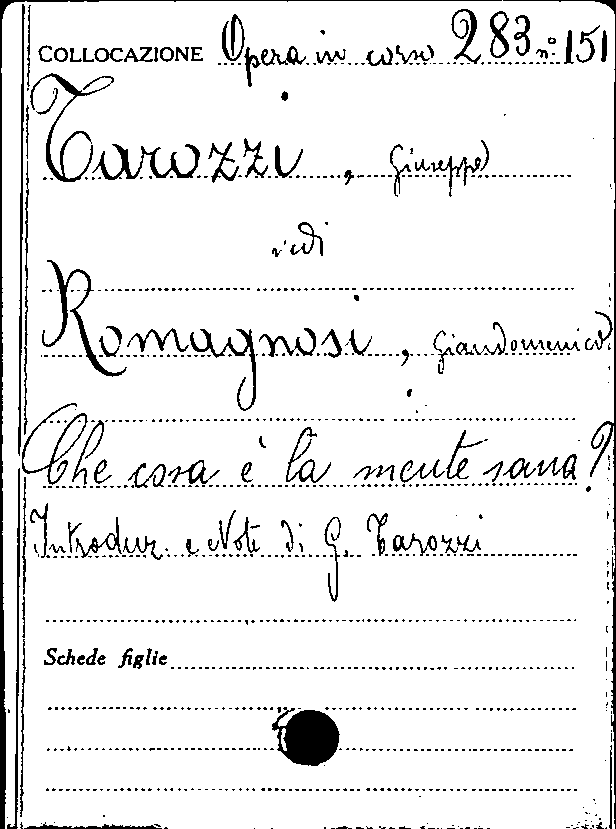 COLLOCAZIONE Opera in corso 283 n° 151
Tarozzi, Giuseppe
vedi
Romagnosi, Giandomenico
Che cosa è la mente sana?
Introduz. e Note di G. Tarozzi
Schede figlie